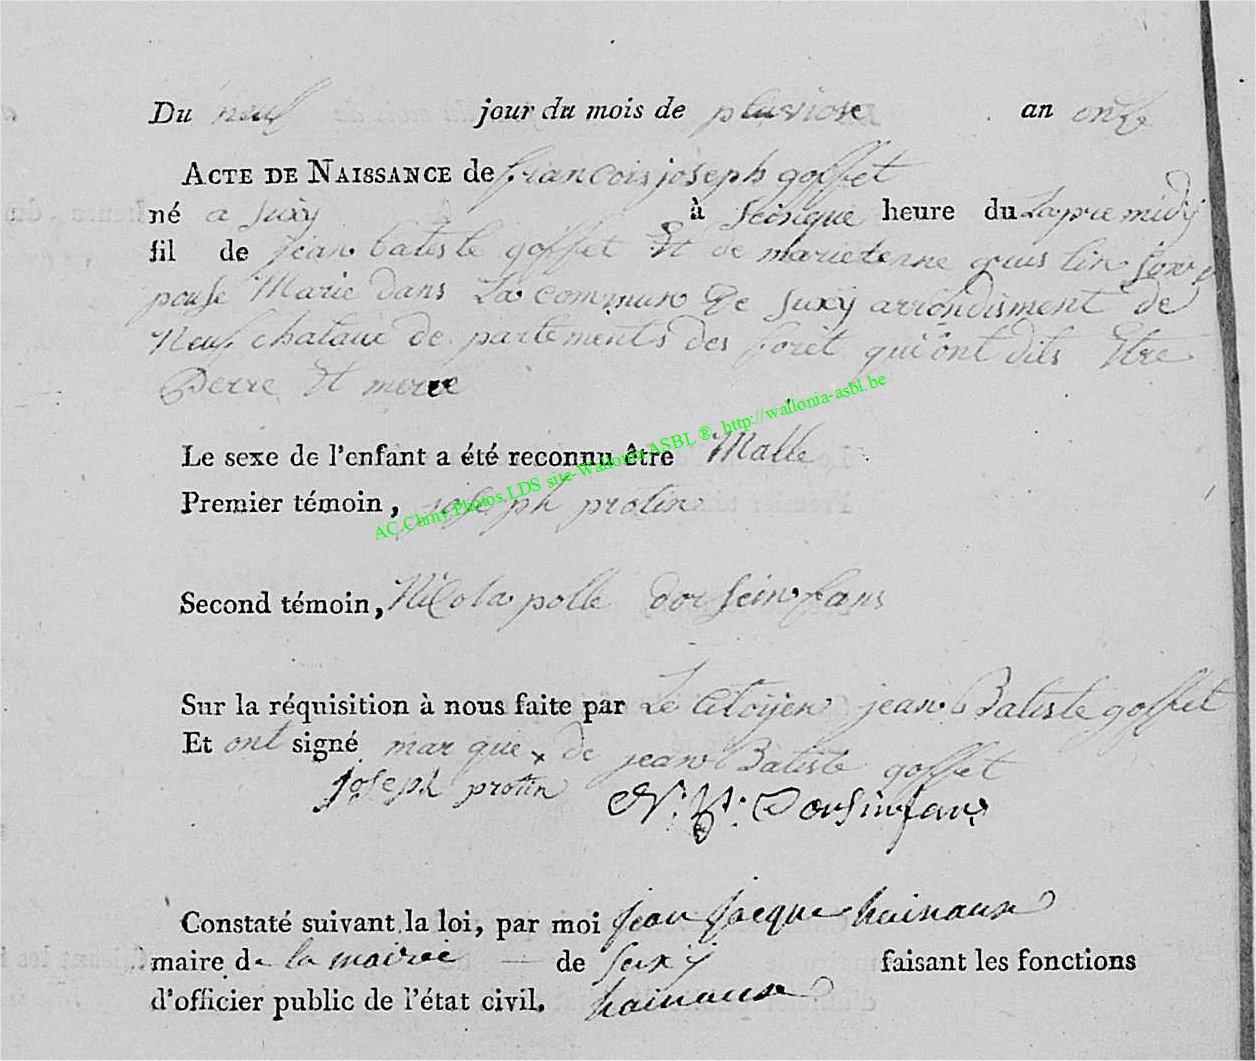 Du neuf jour du mois de pluviose an onze
ACTE DE NAISSANCE de francois joseph goffet
né a Suxÿ à Seinque heure du Lapre midÿ
fil de jean batiste goffet Et de marietenne
pouse Marie dans La commune De Suxÿ arrondisment de
Neuf chataux de partements des foret qui ont dits Etre
Perre Et merre
Le sexe de l'enfant a été reconnu être Malle
Premier témoin, joseph protin
Second témoin, Nicola polle dorseinfans
Sur la réquisition à nous faite par Le Citoÿen jean Batiste goffet
Et ont signé marque x de jean Batiste goffet
joseph protin N: P: Dorsinfans
Constaté suivant la loi, par moi jean jacque hainaux
maire de la mairie de Suxÿ faisant les fonctions
d'officier public de l'état civil. hainaux
AC.Chiny.Photos.LDS site-Wallonia ASBL ®, http://wallonia-asbl.be